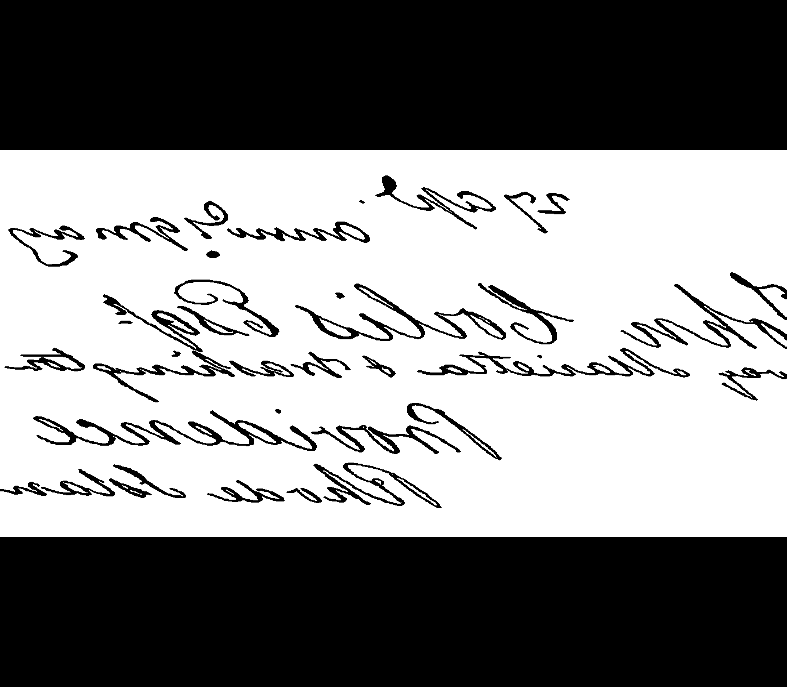 27 apl
9 may
John Corlis Esqr
Marietta & Washington
Providence
Rhode Islan